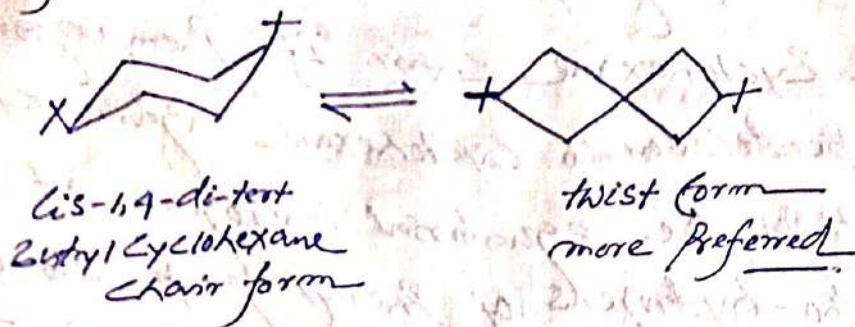 Cis-1,4-di-tert
Butyl Cyclohexane
Chair form
twist form
more Preferred